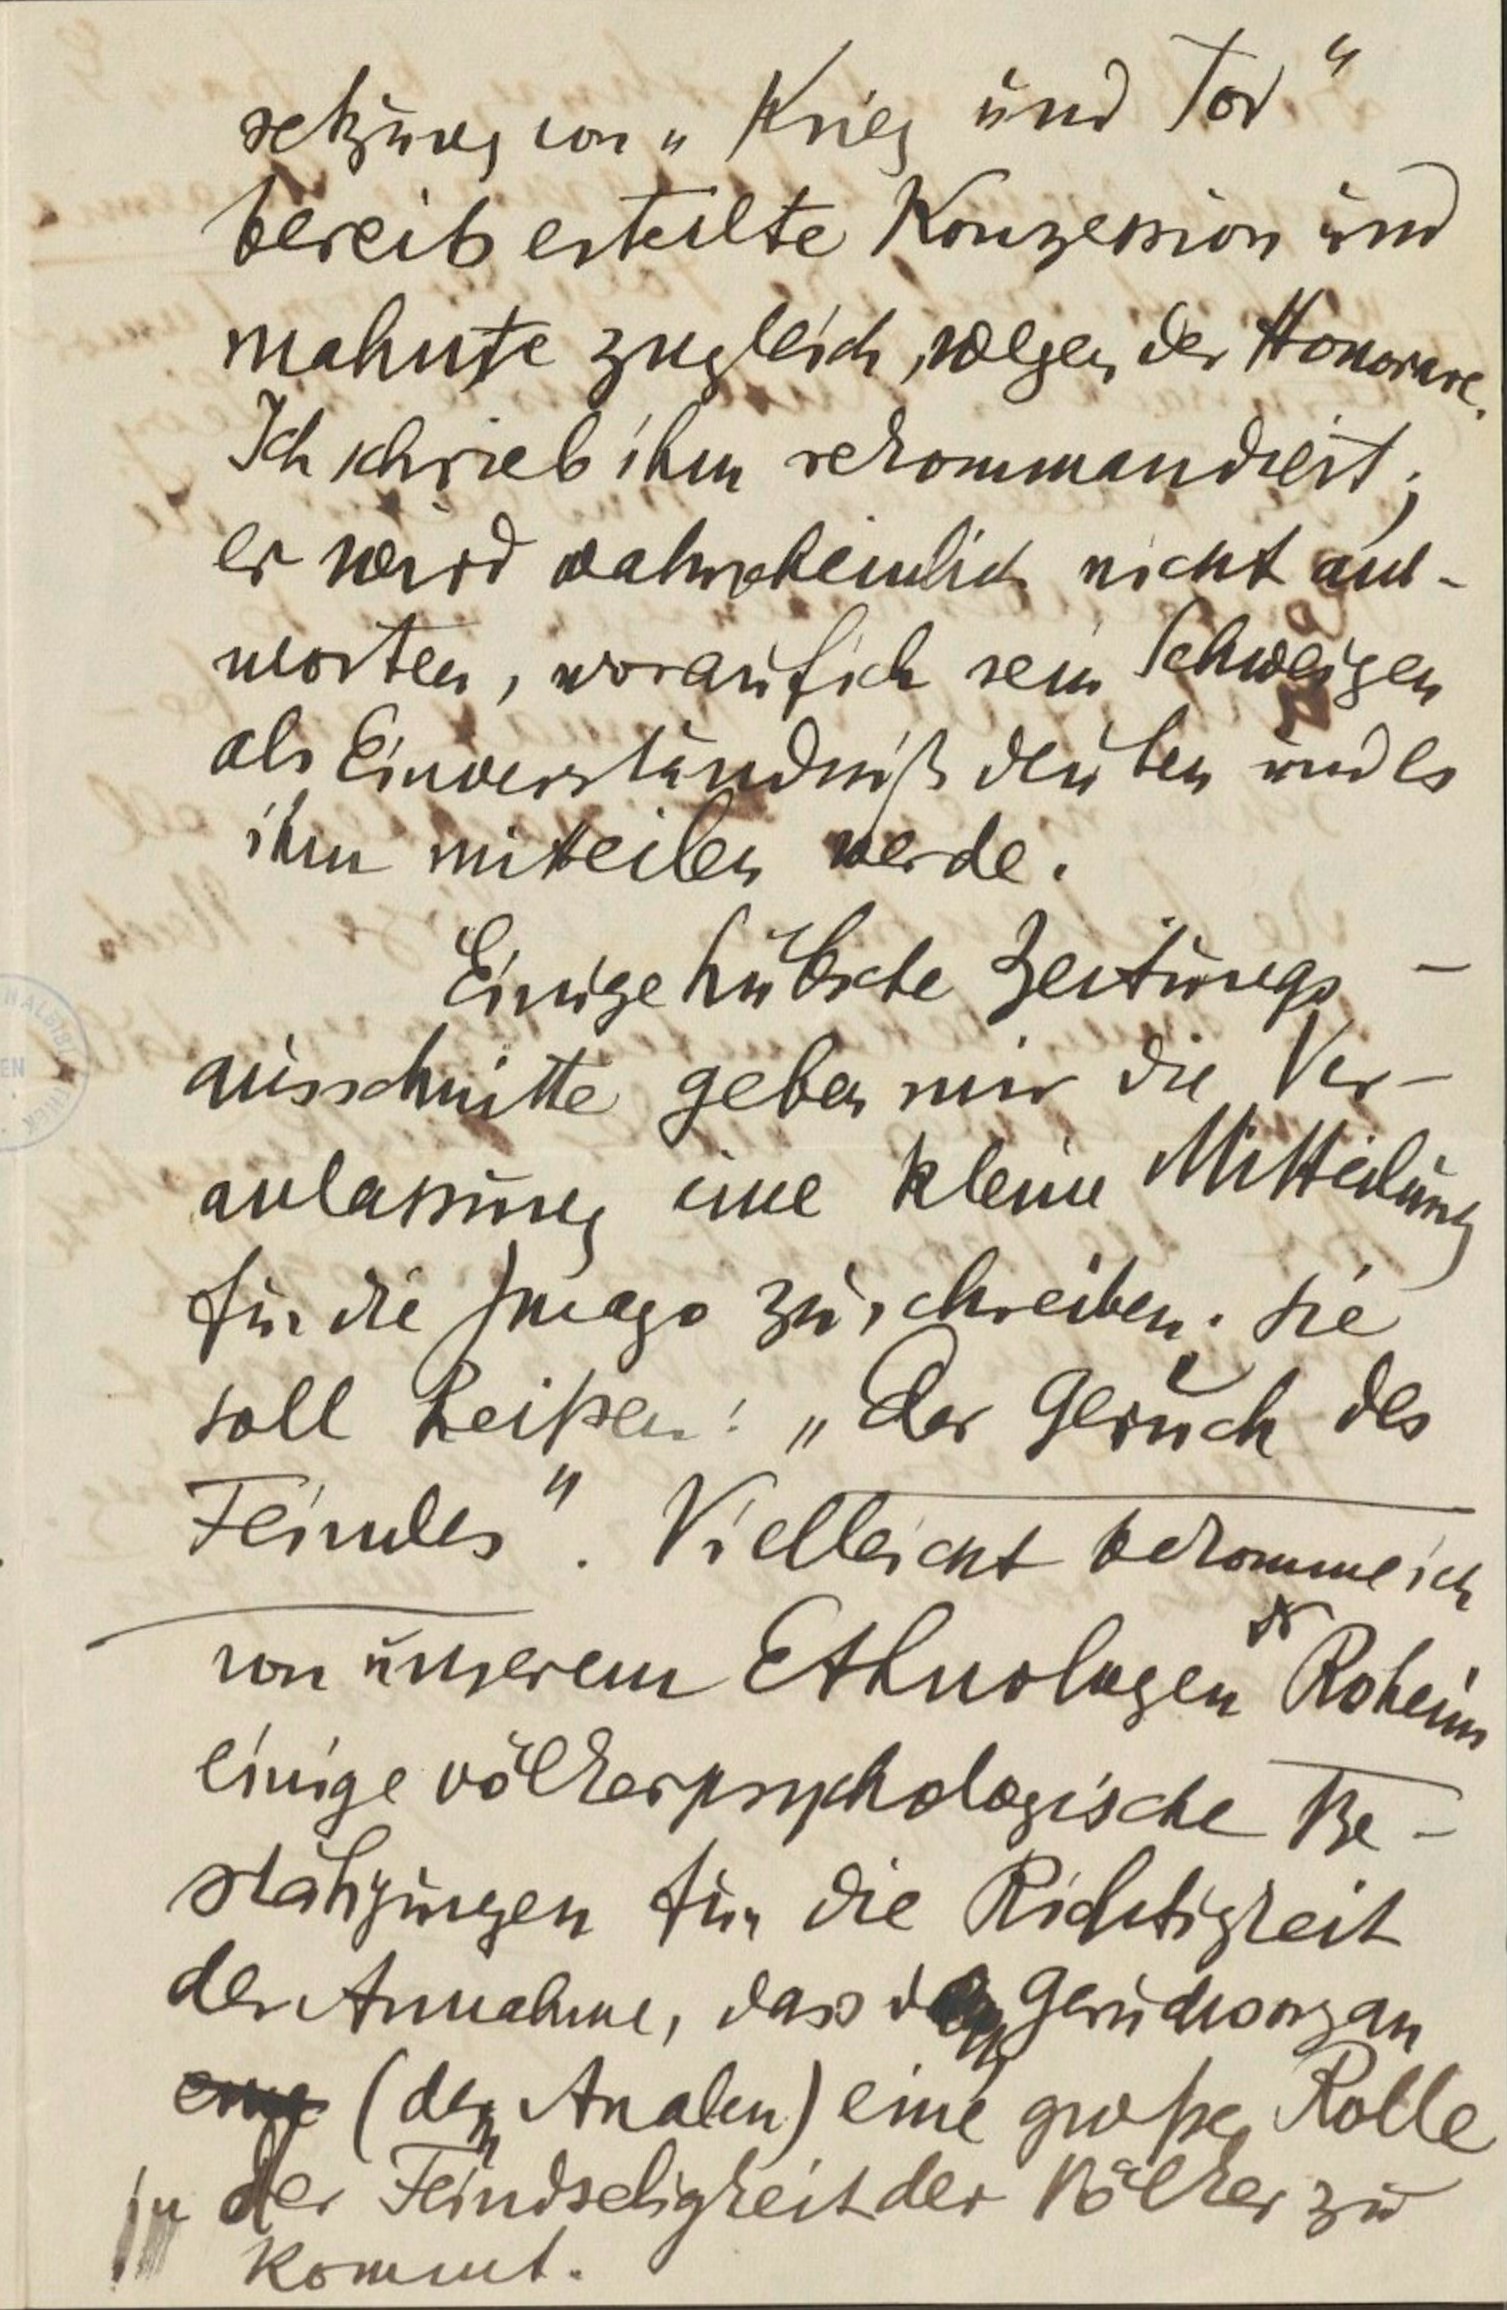 setzung von „Krieg und Tod“
bereits erteilte Konzession und
mahnte zugleich, wegen der Honorare.
Ich schrieb ihm rekommandiert;
er wird wahrscheinlich nicht ant-
worten, worauf ich sein Schweigen
als Einverständniß deuten und es
ihm mitteilen werde.
Einige hübsche Zeitungs-
ausschnitte geben mir die Ver-
anlassung eine kleine Mitteilung
für die Imago zu schreiben. Sie
soll heißen: „Der Geruch des
Feindes“. Vielleicht bekomme ich
von unserem Ethnologen Dr Roheim
einige völkerpsychologische Be-
stätigungen für die Richtigkeit
der Annahme, dass Geruchsorgan
(den Analen) eine große Rolle
in der Feindseligkeit der Völker zu
kommt.